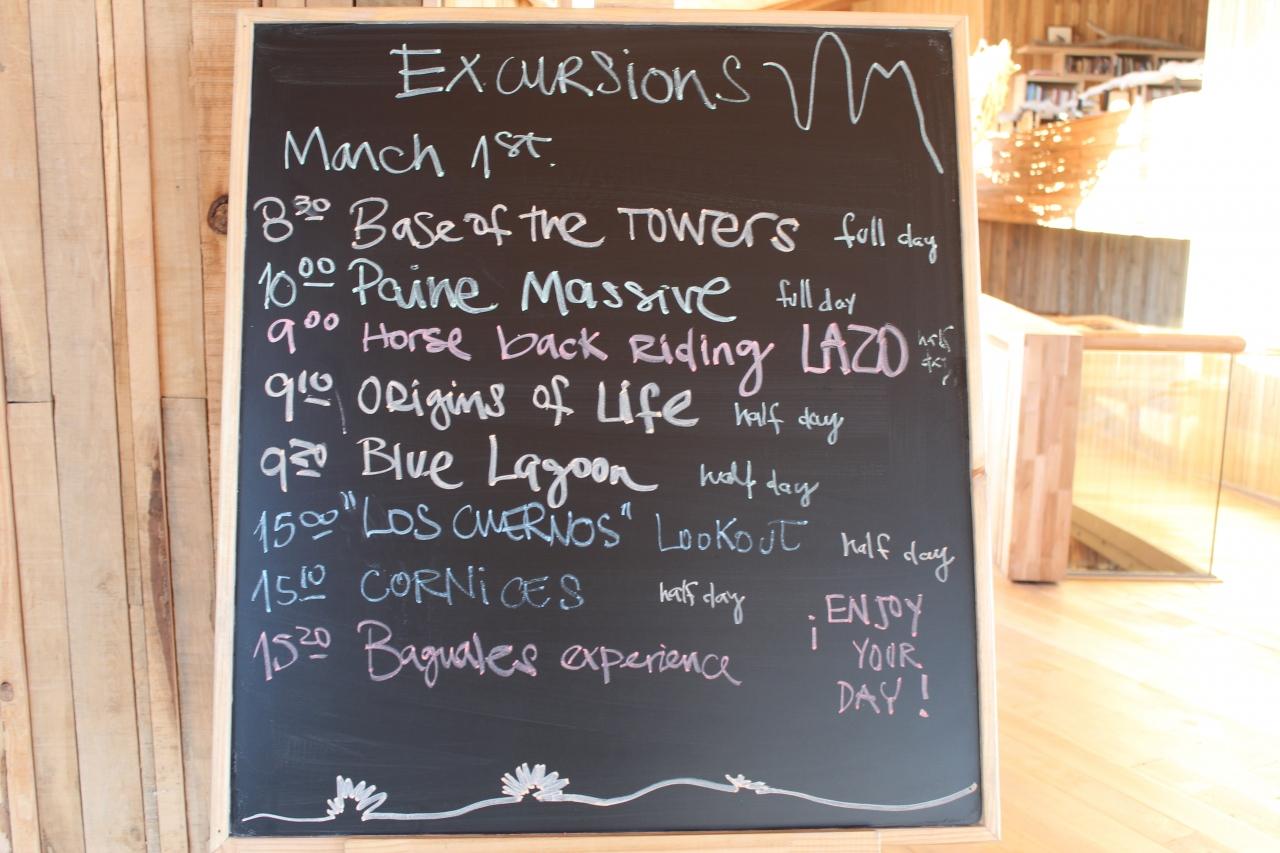 Excursions
March 1st.
8:30 Base of the Towers full day
10:00 Paine Massive full day
9:00 Horse back Riding LAZO half day
9:10 Origins of Life half day
9:20 Blue Lagoon half day
15:00 "LOS CUERNOS" LOOKOUT half day
15:10 CORNiCES half day
15:20 Baguales experience
¡ENJOY
YOUR
DAY!